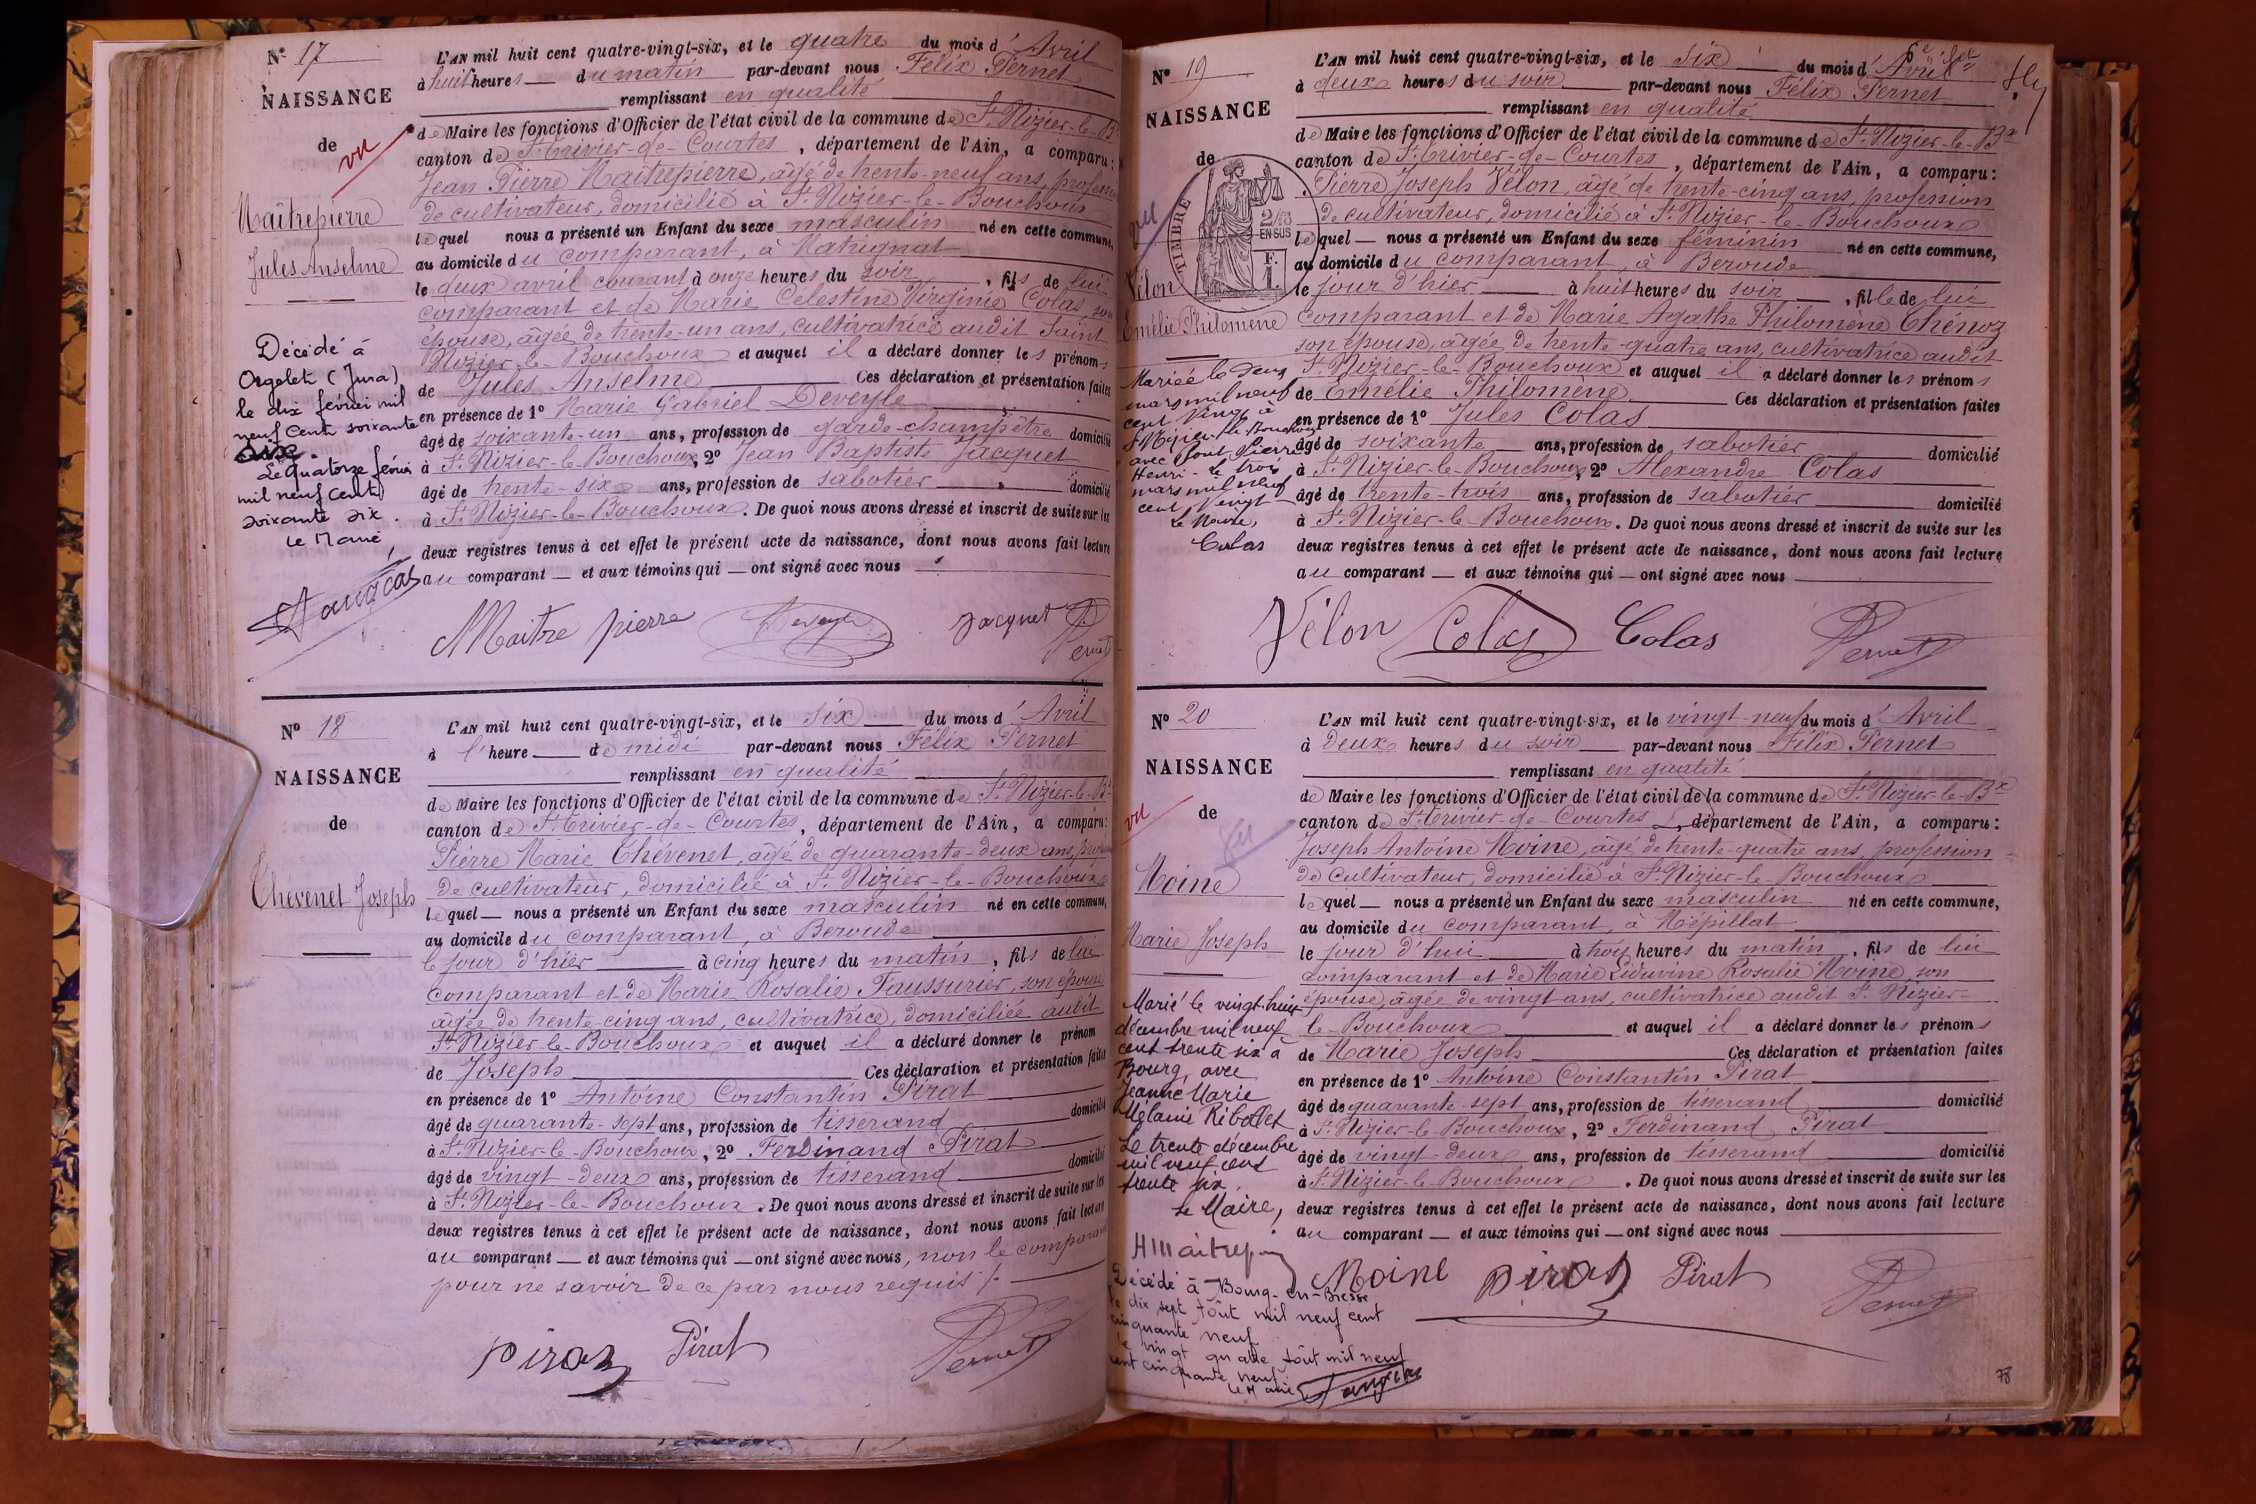 N° 17
NAISSANCE
de
vu
Maîtrepierre
Jules Anselme
Décédé à
Orgelet (Jura)
le dix février mil
neuf cent soixante
six.
Le quatorze février
mil neuf cent
soixante six.
Le Maire,
L'AN mil huit cent quatre-vingt-six, et le quatre du mois d'Avril
à huit heures du matin par-devant nous Félix Pernet
remplissant en qualité
de Maire les fonctions d'Officier de l'état civil de la commune de St Nizier-le-Bx
canton de St Trivier-de-Courtes, département de l'Ain, a comparu:
Jean Pierre Maitrepierre, âgé de trente-neuf ans, profession
de cultivateur, domicilié à St Nizier-le-Bouchoux
lequel nous a présenté un Enfant du sexe masculin né en cette commune,
au domicile du comparant, à Matrignat
le deux avril courant à onze heures du soir, fils de lui
comparant et de Marie Célestine Virginie Colas, son
épouse, âgée de trente-un ans, cultivatrice audit Saint
Nizier-le-Bouchoux et auquel il a déclaré donner les prénoms
de Jules Anselme Ces déclaration et présentation faites
en présence de 1° Marie Gabriel Deveyle
âgé de soixante-un ans, profession de garde-champêtre domicilié
à St Nizier-le-Bouchoux, 2° Jean Baptiste Jacquet
âgé de trente-six ans, profession de sabotier domicilié
à St Nizier-le-Bouchoux. De quoi nous avons dressé et inscrit de suite sur les
deux registres tenus à cet effet le présent acte de naissance, dont nous avons fait lecture
au comparant et aux témoins qui ont signé avec nous
Maitre pierre Deveyle Jacquet Pernet
N° 18
NAISSANCE
de
Thévenet Joseph
L'AN mil huit cent quatre-vingt-six, et le six du mois d'Avril
à l'heure de midi par-devant nous Félix Pernet
remplissant en qualité
de Maire les fonctions d'Officier de l'état civil de la commune de St Nizier-le-Bx
canton de St Trivier-de-Courtes, département de l'Ain, a comparu:
Pierre Marie Thévenet, âgé de quarante-deux ans, profession
de cultivateur, domicilié à St Nizier-le-Bouchoux
lequel nous a présenté un Enfant du sexe masculin né en cette commune,
au domicile du comparant, à Beroude
le jour d'hier à cinq heures du matin, fils de lui
comparant et de Marie Rosalie Faussurier, son épouse
âgée de trente-cinq ans, cultivatrice, domiciliée audit
St Nizier-le-Bouchoux et auquel il a déclaré donner le prénom
de Joseph Ces déclaration et présentation faites
en présence de 1° Antoine Constantin Pirat
âgé de quarante-sept ans, profession de tisserand domicilié
à St Nizier-le-Bouchoux, 2° Ferdinand Pirat
âgé de vingt-deux ans, profession de tisserand domicilié
à St Nizier-le-Bouchoux. De quoi nous avons dressé et inscrit de suite sur les
deux registres tenus à cet effet le présent acte de naissance, dont nous avons fait lecture
au comparant et aux témoins qui ont signé avec nous, non le comparant
pour ne savoir de ce par nous requis
Pirat Pernet
N° 19
NAISSANCE
de
vu
TIMBRE
2/10 EN SUS
Vélon
Emélie Philomène
Mariée le deux
mars mil neuf
cent vingt à
St Nizier-le-Bouchoux
avec Pont Pierre
Henri - Le trois
mars mil neuf
cent vingt
Le Maire,
Colas
L'AN mil huit cent quatre-vingt-six, et le six du mois d'Avril
à deux heures du soir par-devant nous Félix Pernet
remplissant en qualité
de Maire les fonctions d'Officier de l'état civil de la commune de St Nizier-le-Bx
canton de St Trivier-de-Courtes, département de l'Ain, a comparu:
Pierre Joseph Vélon, âgé de trente-cinq ans, profession
de cultivateur, domicilié à St Nizier-le-Bouchoux
lequel nous a présenté un Enfant du sexe féminin né en cette commune,
au domicile du comparant, à Beroude
le jour d'hier à huit heures du soir, fille de lui
comparant et de Marie Agathe Philomène Chénoz
son épouse, âgée de trente-quatre ans, cultivatrice audit
St Nizier-le-Bouchoux et auquel il a déclaré donner les prénoms
de Emélie Philomène Ces déclaration et présentation faites
en présence de 1° Jules Colas
âgé de soixante ans, profession de sabotier domicilié
à St Nizier-le-Bouchoux, 2° Alexandre Colas
âgé de trente-trois ans, profession de sabotier domicilié
à St Nizier-le-Bouchoux. De quoi nous avons dressé et inscrit de suite sur les
deux registres tenus à cet effet le présent acte de naissance, dont nous avons fait lecture
au comparant et aux témoins qui ont signé avec nous
Vélon Colas Colas Pernet
N° 20
NAISSANCE
de
vu
vu
Moine
Marie Joseph
Marié le vingt-huit
décembre mil neuf
cent trente six à
Bourg, avec
Jeanne Marie
Mélanie Ribollet
Le trente décembre
mil neuf cent
trente six.
Le Maire,
HMaitrepierre
Décédé à Bourg-en-Bresse
le dix sept août mil neuf cent
cinquante neuf
le vingt quatre août mil neuf
cent cinquante neuf
Le Maire
L'AN mil huit cent quatre-vingt-six, et le vingt-neuf du mois d'Avril
à deux heures du soir par-devant nous Félix Pernet
remplissant en qualité
de Maire les fonctions d'Officier de l'état civil de la commune de St Nizier-le-Bx
canton de St Trivier-de-Courtes, département de l'Ain, a comparu:
Joseph Antoine Moine, âgé de trente-quatre ans, profession
de cultivateur, domicilié à St Nizier-le-Bouchoux
lequel nous a présenté un Enfant du sexe masculin né en cette commune,
au domicile du comparant, à Mépillat
le jour d'hui à trois heures du matin, fils de lui
comparant et de Marie Liduvine Rosalie Moine, son
épouse, âgée de vingt ans, cultivatrice audit St Nizier
le-Bouchoux et auquel il a déclaré donner les prénoms
de Marie Joseph Ces déclaration et présentation faites
en présence de 1° Antoine Constantin Pirat
âgé de quarante-sept ans, profession de tisserand domicilié
à St Nizier-le-Bouchoux, 2° Ferdinand Pirat
âgé de vingt-deux ans, profession de tisserand domicilié
à St Nizier-le-Bouchoux. De quoi nous avons dressé et inscrit de suite sur les
deux registres tenus à cet effet le présent acte de naissance, dont nous avons fait lecture
au comparant et aux témoins qui ont signé avec nous
Moine Pirat Pernet
78